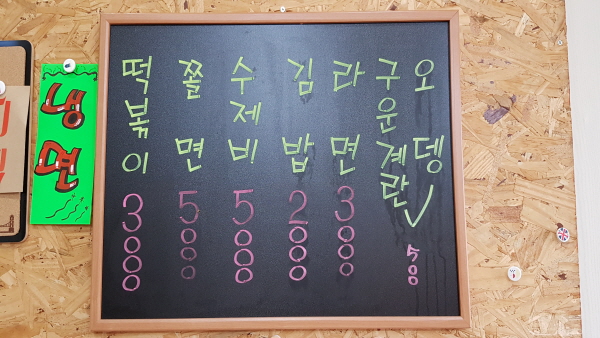 냉면
떡볶이 3000
쫄면 5000
수제비 5000
김밥 2000
라면 3000
구운계란
오뎅 ✓ 500